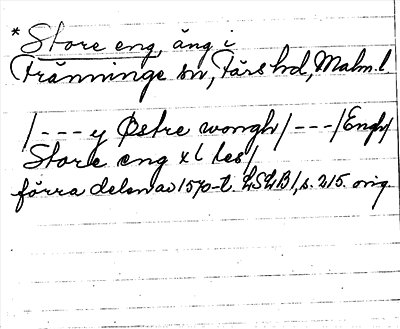 * Store eng, äng i
Tränninge sn, Färs hd, Malm. l.
/--- y Østre wongh/---/Engh/
Store eng x l les/
förra delen av 1570-t. LSLB/, s. 215. orig.